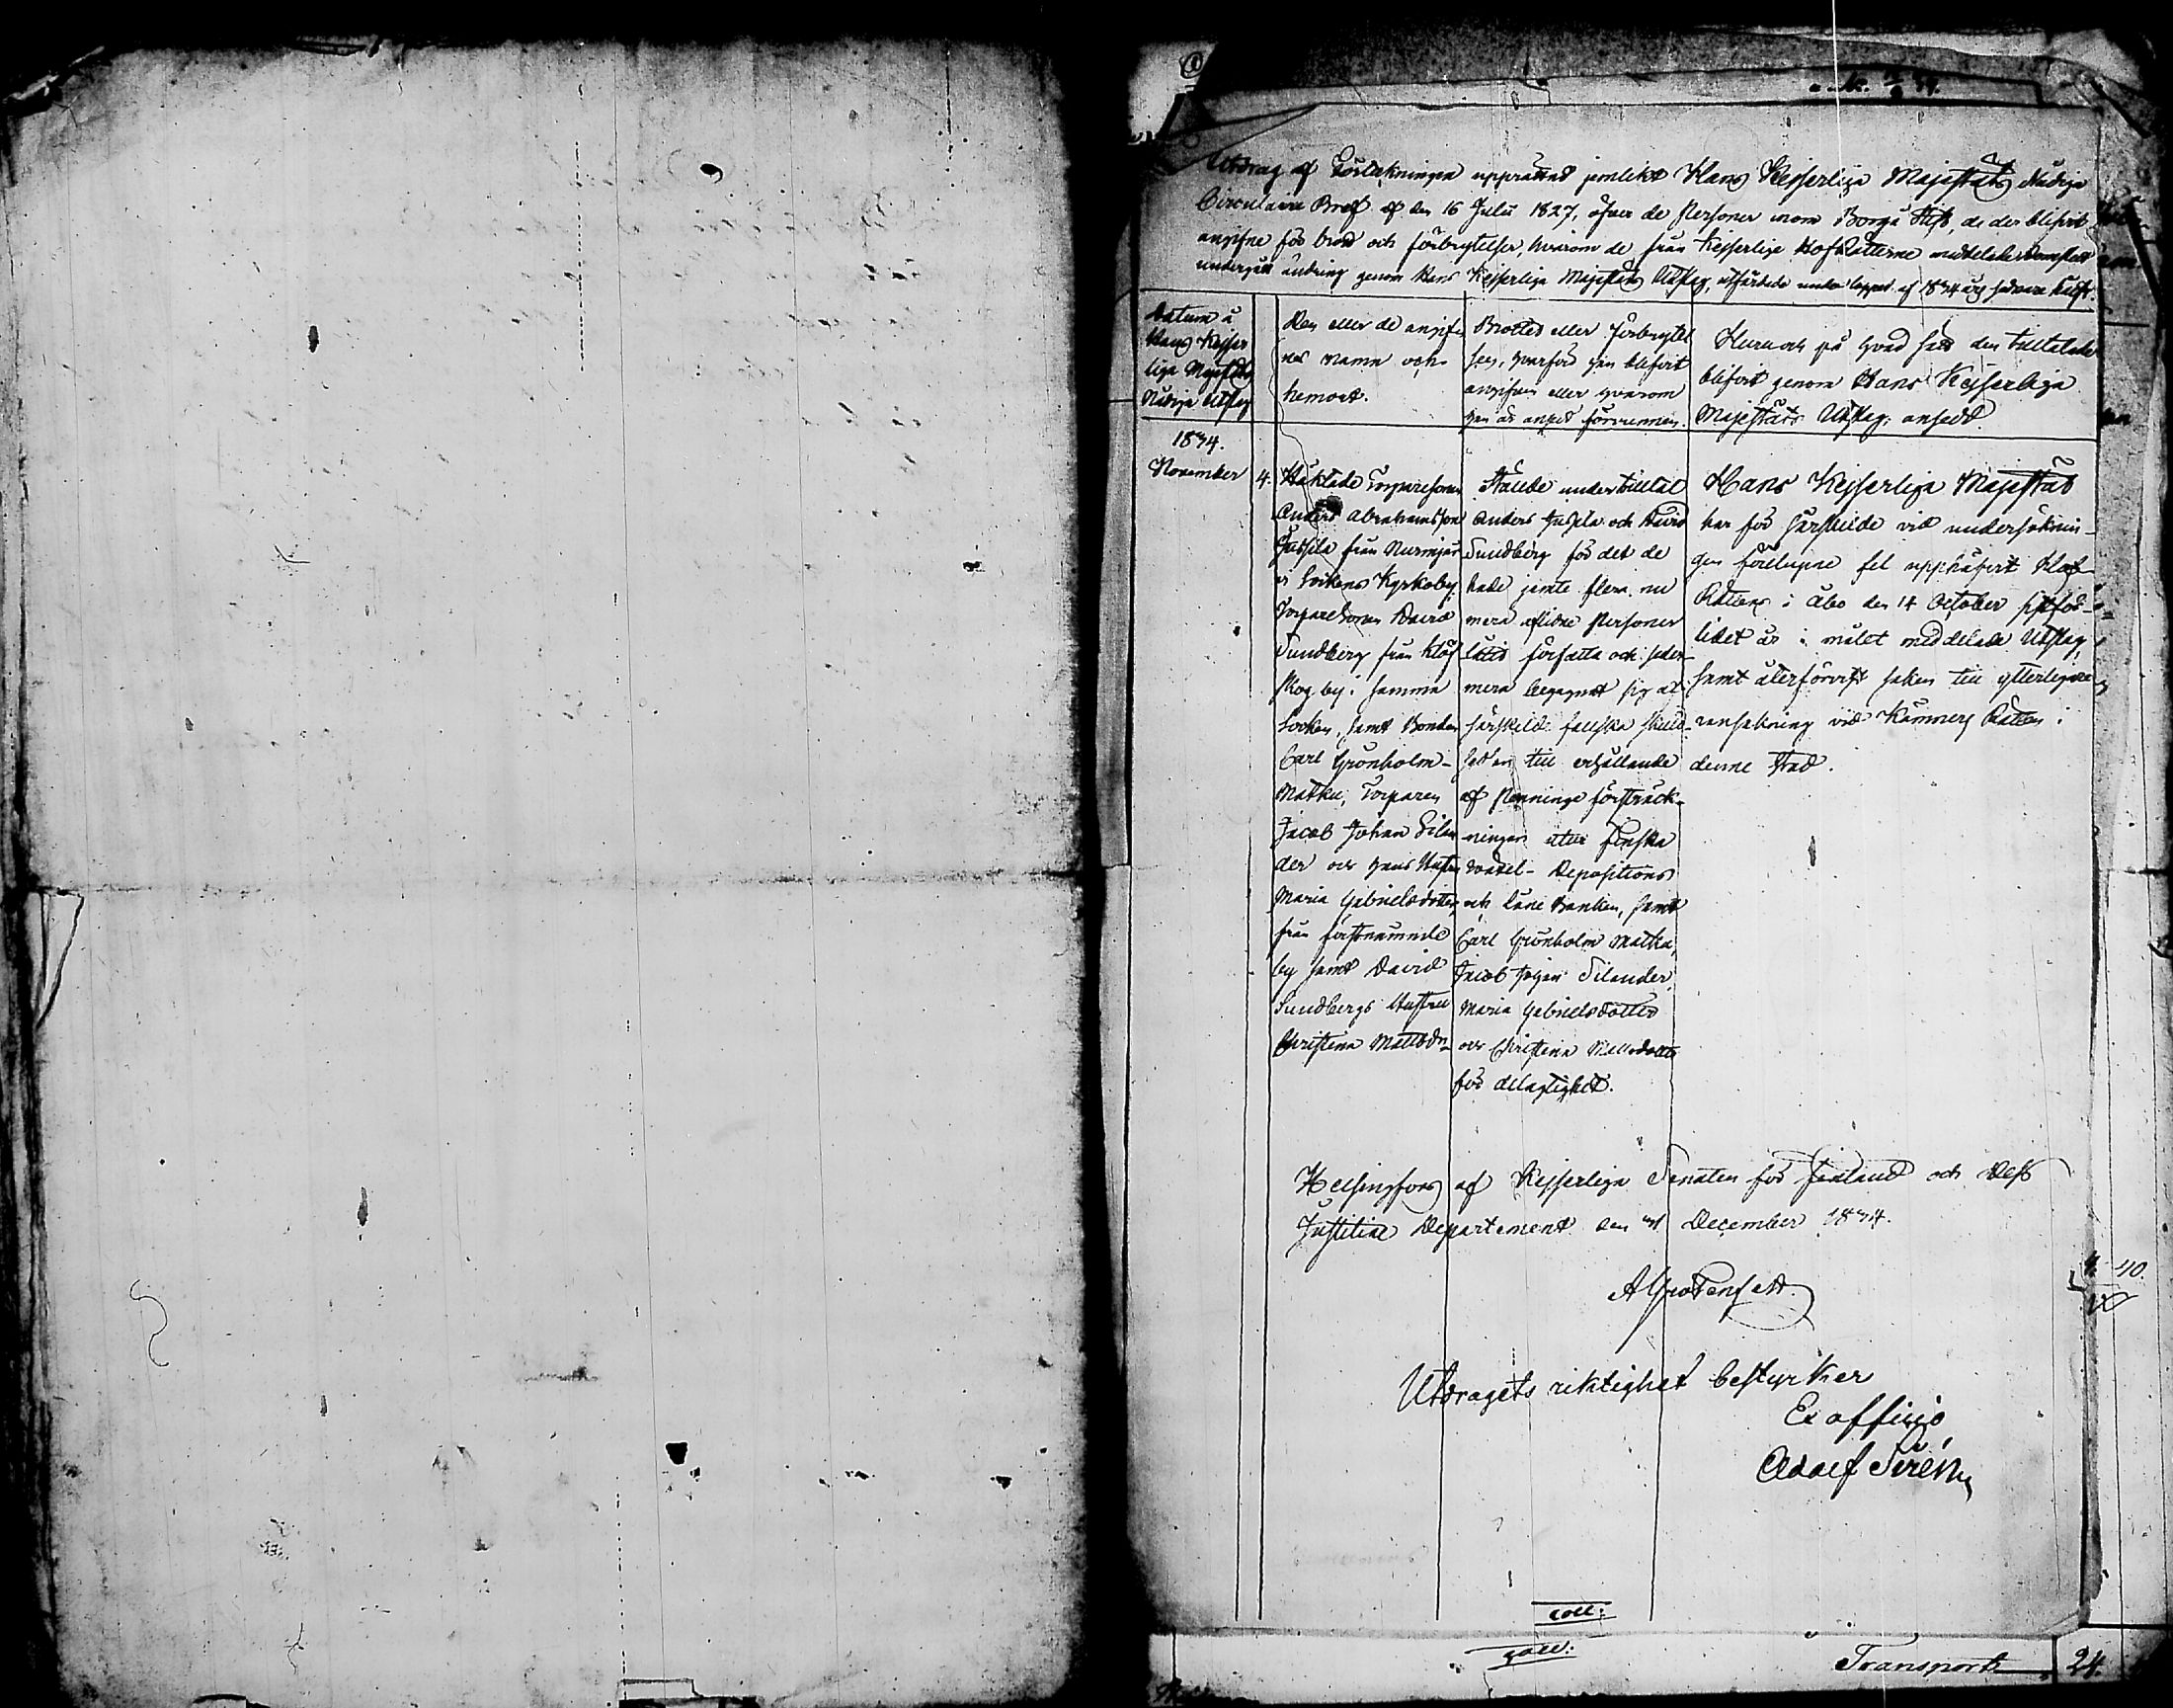 Utdrag af Förtekningen upprättad jemlikt Hans Kejserliga Majestäts Nådiga
Circulaire Bref af den 16 Julii 1827, öfver de Personer inom Borgå Stift, de der blifvit
angifne för brott och förbrytelser, hvarom de från Kejserliga HofRätterne meddelade Domslut
undergått ändring genom Hans Kejserliga Majestäts Utslag, utfärdade under loppet af 1834 års sednare hälft.
Datum å
Hans Kejser
liga Majestäts
Nådiga Utslag
Den eller de angif
nes namn och
hemort.
Brottet eller förbrytel
sen, hvarför han blifvit
angifven eller hvarom
han är ansedd förvunnen.
Huru och på hvad sätt den tilltalade
blifvit genom Hans Kejserliga
Majestäts Utslag ansedd.
1834.
November 4.
Häktade Torparesonen
Anders Abrahamsson
Jussila från Nurmijär
vi Sockens Kyrkoby,
Torparesonen David
Sundberg från Klöf
skog by i samma
Socken, samt Bonden
Carl Grönholm-
Matku, Torparen
Jacob Johan Silan
der och hans Hustru
Maria Gabrielsdotter,
från förstnämnde
by samt David
Sundbergs Hustru
Christina Mattsdr
Ståude under tilltal
Anders Jussila och David
Sundberg för det de
hade jemte flera nu
mera aflidne Personer
låtit författa och seder-
mera begagnat sig af
särskilde falska skuld-
sedlar till erhållande
af Penninge försträck-
ningar utur Finska
Wäxel- Depositions
och Låne Banken, samt
Carl Grönholm Matku,
Jacob Johan Silander,
Maria Gabrielsdotter
och Christina Mattsdotter
för delagtighet.
Hans Kejserliga Majestät
har för särskilde vid undersöknin-
gen förelupne fel upphäfvit Hof-
Rättens i Åbo den 14 October sistför-
lidet år i målet meddelade Utslag,
samt återförvist saken till ytterligare
ransakning vid Kämners Rätten i
denne Stad.
Helsingfors af Kejserliga Senaten för Finland och Dess
Justitiae Departement den 31 December 1834.
A Grotenfelt
Utdragets riktighet bestyrker
Ex officio
Adolf Sirén
4. 40.
coll:
coll:
Transport 24